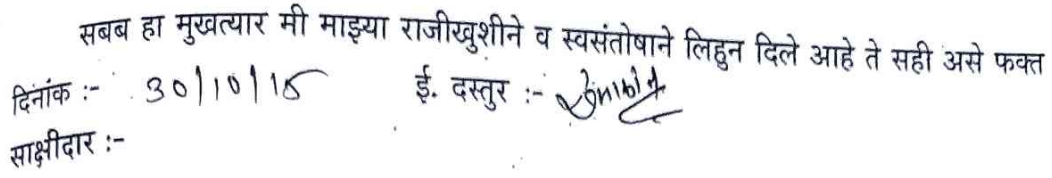 सबब हा मुखत्यार मी माझ्या राजीखुशीने व स्वसंतोषाने लिहुन दिले आहे ते सही असे फक्त
दिनांक :- 30/10/15 ई. दस्तुर :-
साक्षीदार :-